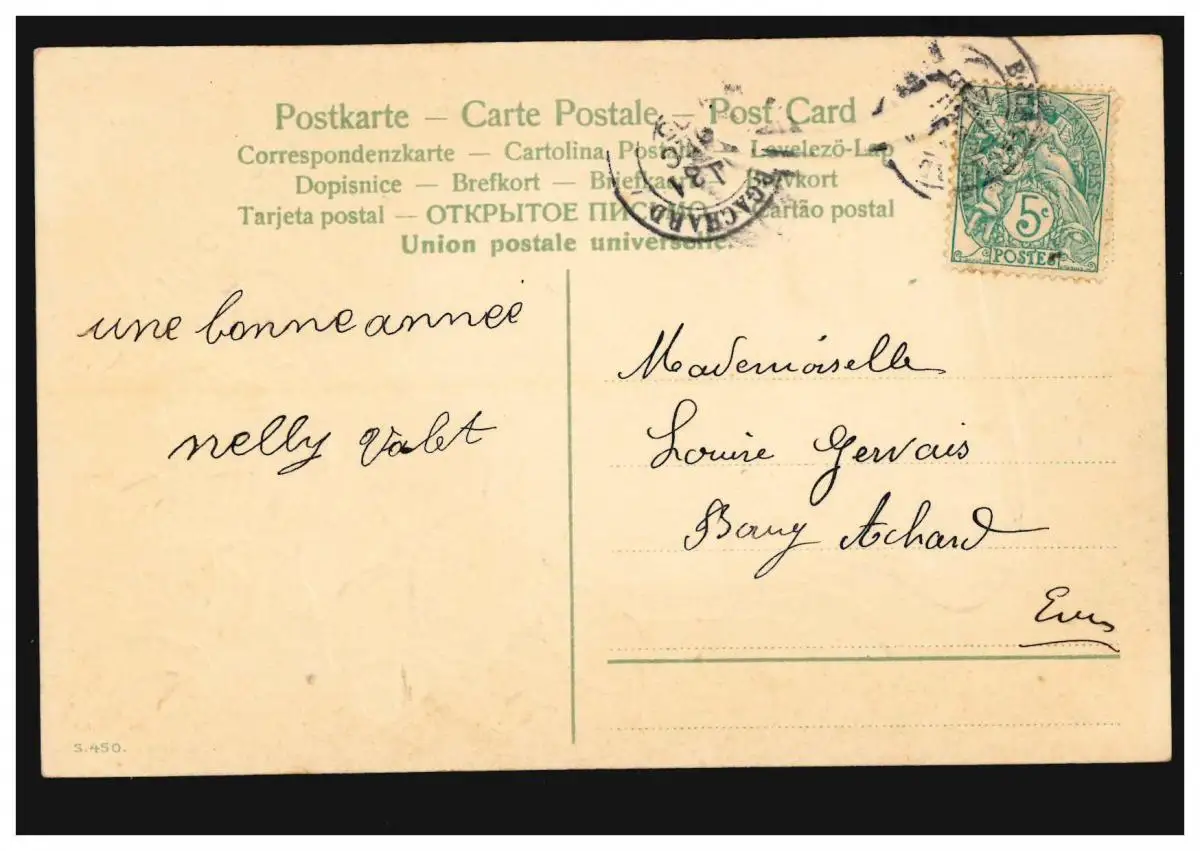 Postkarte — Carte Postale — Post Card
Correspondenzkarte — Cartolina Postale — Levelezö-Lap
Dopisnice — Brefkort — Briefkaart — Brevkort
Tarjeta postal — ОТКРЫТОЕ ПИСЬМО — Cartão postal
Union postale universelle.
GACHARD
31
5c
POSTES
une bonne année
nelly Valet
Mademoiselle
Louise Gervais
Bourg Achard
Eure
S.450.